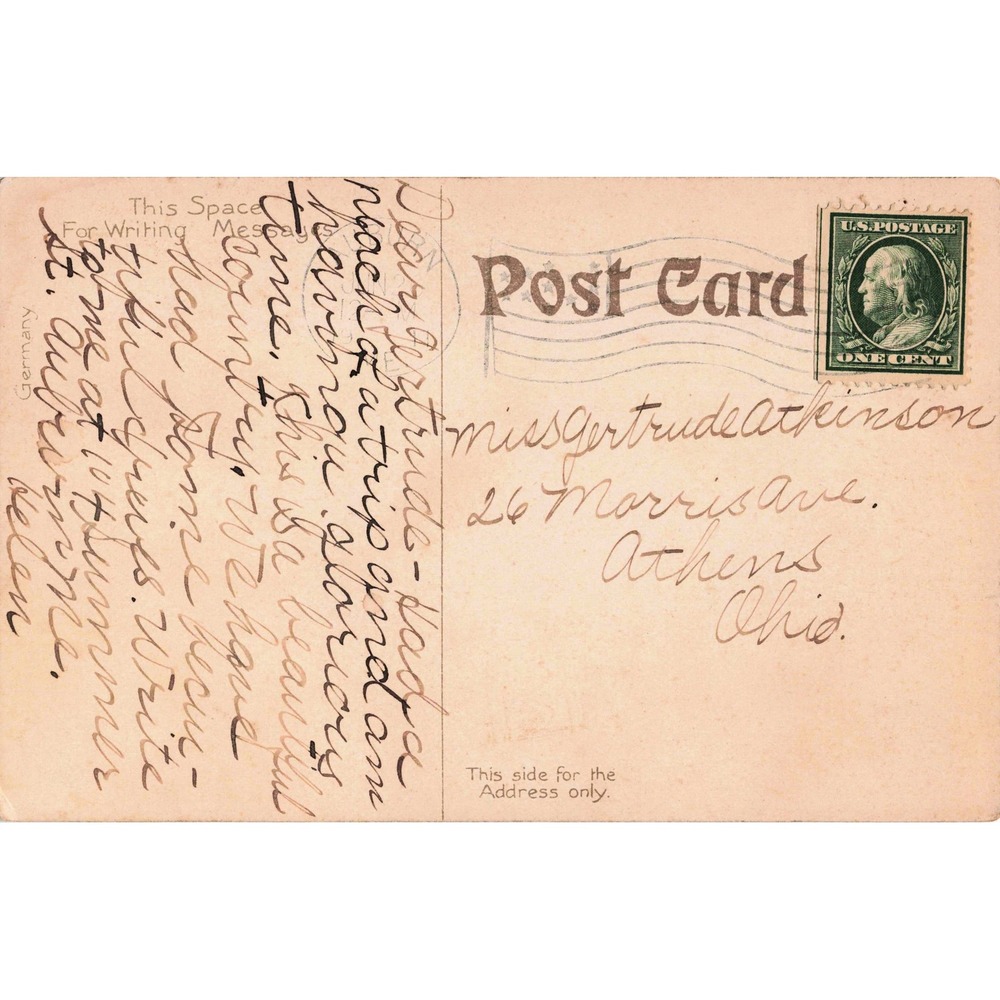 This Space
For Writing Messages
Germany
Dear Gertrude - Had a
peach of a trip and am
having a glorious
time. This is a beautiful
country. We have
had some
Write
to me at 10 Summer
St. Auburn, Me.
Helen
Post Card
U.S. POSTAGE
ONE CENT
Miss Gertrude Atkinson
26 Morris Ave.
Athens
Ohio.
This side for the
Address only.